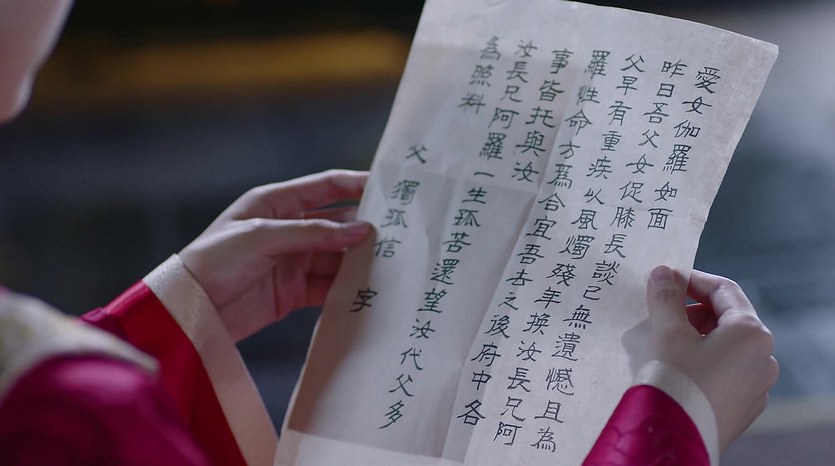 愛女伽羅如面
昨日吾父女促膝長談已無遺憾且為
父早有重疾以風燭殘年換汝長兄阿
羅性命方爲合宜吾去之後府中各
事皆托與汝
汝長兄阿羅一生孤苦還望汝代父多
為照料
父 獨孤信 字